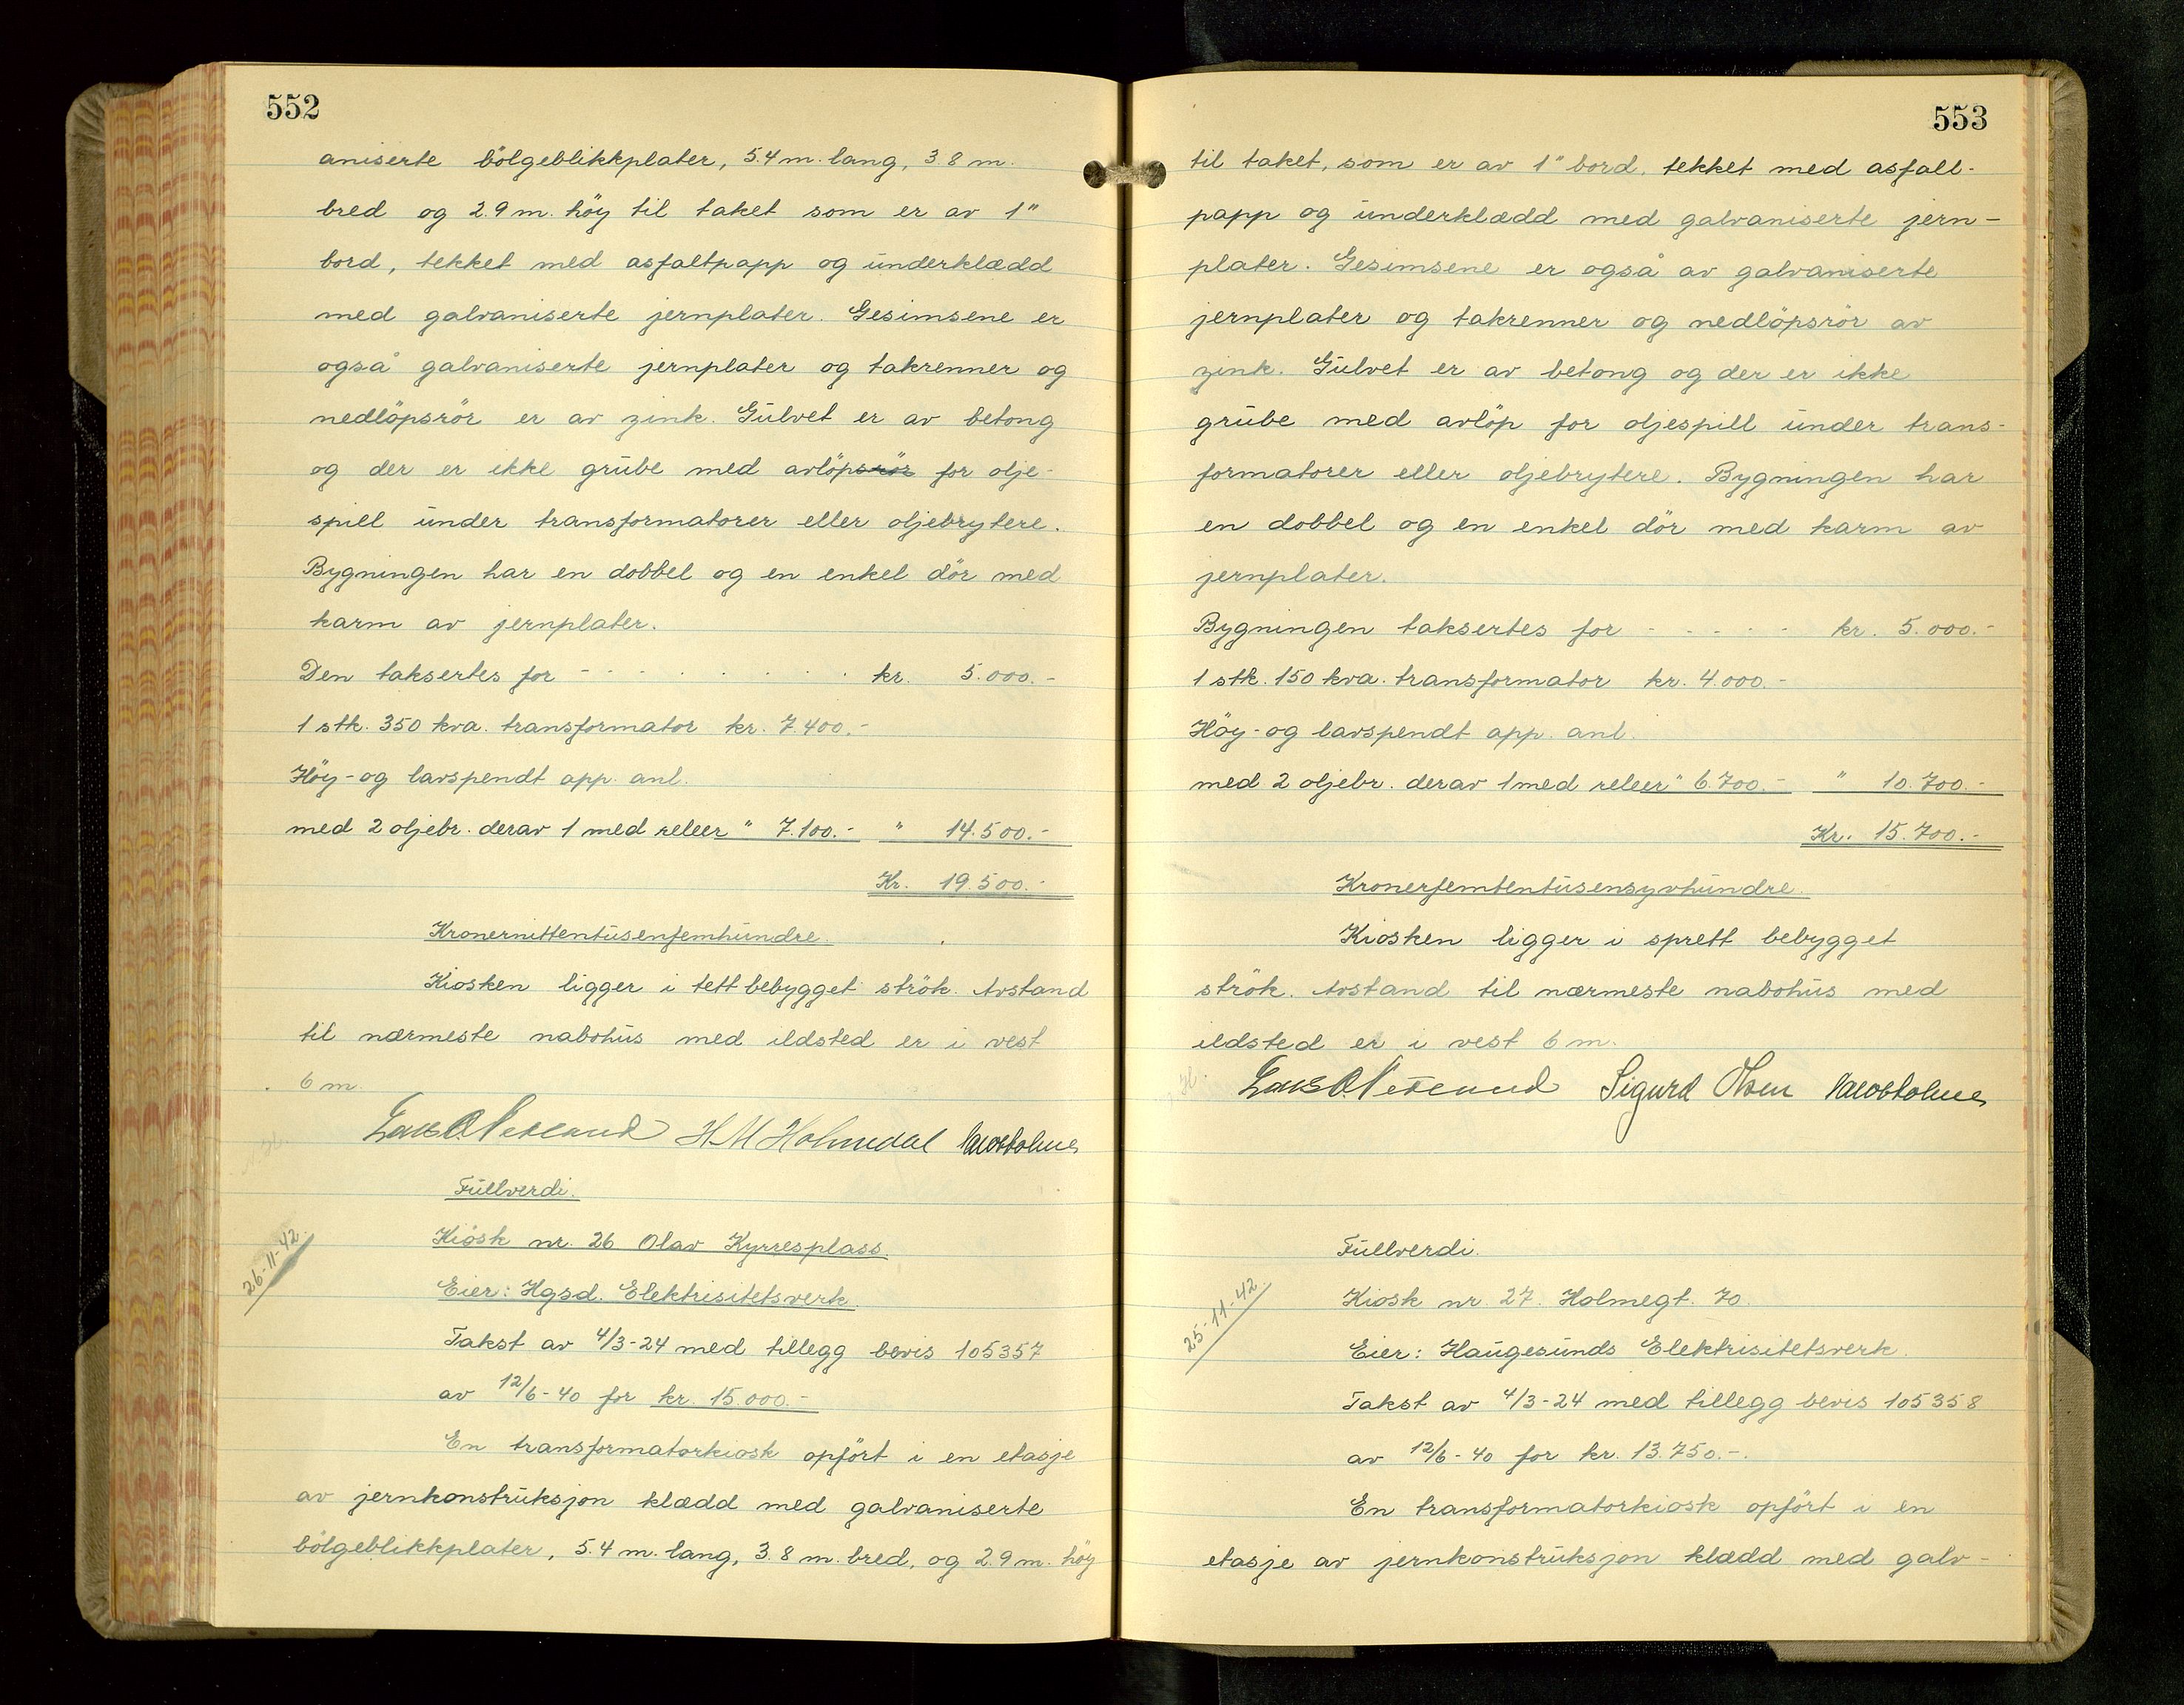 552
aniserte bölgeblikkplater, 5.4 m. lang, 3.8 m.
bred og 2.9 m. höy til taket som er av 1"
bord, tekket med asfaltpapp og underklædd
med galvaniserte jernplater. Gesimsene er
også galvaniserte jernplater og takrenner og
nedlöpsrör er av zink. Gulvet er av betong
og der er ikke grube med avlöpsrör for olje-
spill under transformatorer eller oljebrytere.
Bygningen har en dobbel og en enkel dör med
karm av jernplater.
Den taksertes for - - - - - - - - - kr. 5.000.-
1 stk. 350 kva. transformator kr. 7.400.-
Höy- og lavspendt app. anl.
med 2 oljebr. derav 1 med releer " 7.100.- " 14.500.-
Kr. 19.500.-
Kronernittentusenfemhundre.
Kiosken ligger i tett bebygget strök. Avstand
til nærmeste nabohus med ildsted er i vest
6 m.
H M Holmedal
Fullverdi.
26-11-42.
Kiosk nr. 26 Olav Kyrresplass.
Eier: Hgsd. Elektrisitetsverk.
Takst av 4/3-24 med tillegg bevis 105357
av 12/6-40 for kr. 15.000.-
En transformatorkiosk opfört i en etasje
av jernkonstruksjon klædd med galvaniserte
bölgeblikkplater, 5.4 m. lang, 3.8 m. bred, og 2.9 m. höy
553
til taket, som er av 1" bord, tekket med asfalt-
papp og underklædd med galvaniserte jern-
plater. Gesimsene er også av galvaniserte
jernplater og takrenner og nedlöpsrör av
zink. Gulvet er av betong og der er ikke
grube med avlöp for oljespill under trans-
formatorer eller oljebrytere. Bygningen har
en dobbel og en enkel dör med karm av
jernplater.
Bygningen taksertes for - - - - - kr. 5.000.-
1 stk. 150 kva. transformator kr. 4.000.-
Höy- og lavspendt app. anl.
med 2 oljebr. derav 1 med releer " 6.700.- " 10.700.-
Kr. 15.700.-
Kronerfemtentusensyvhundre.
Kiosken ligger i sprett bebygget
strök. Avstand til nærmeste nabohus med
ildsted er i vest 6 m.
Sigurd Olsen
Fullverdi.
25-11-42.
Kiosk nr. 27. Holmegt. 70.
Eier: Haugesunds Elektrisitetsverk.
Takst av 4/3-24 med tillegg bevis 105358
av 12/6-40 for kr. 13.750.-.
En transformatorkiosk opfört i en
etasje av jernkonstruksjon klædd med galv-